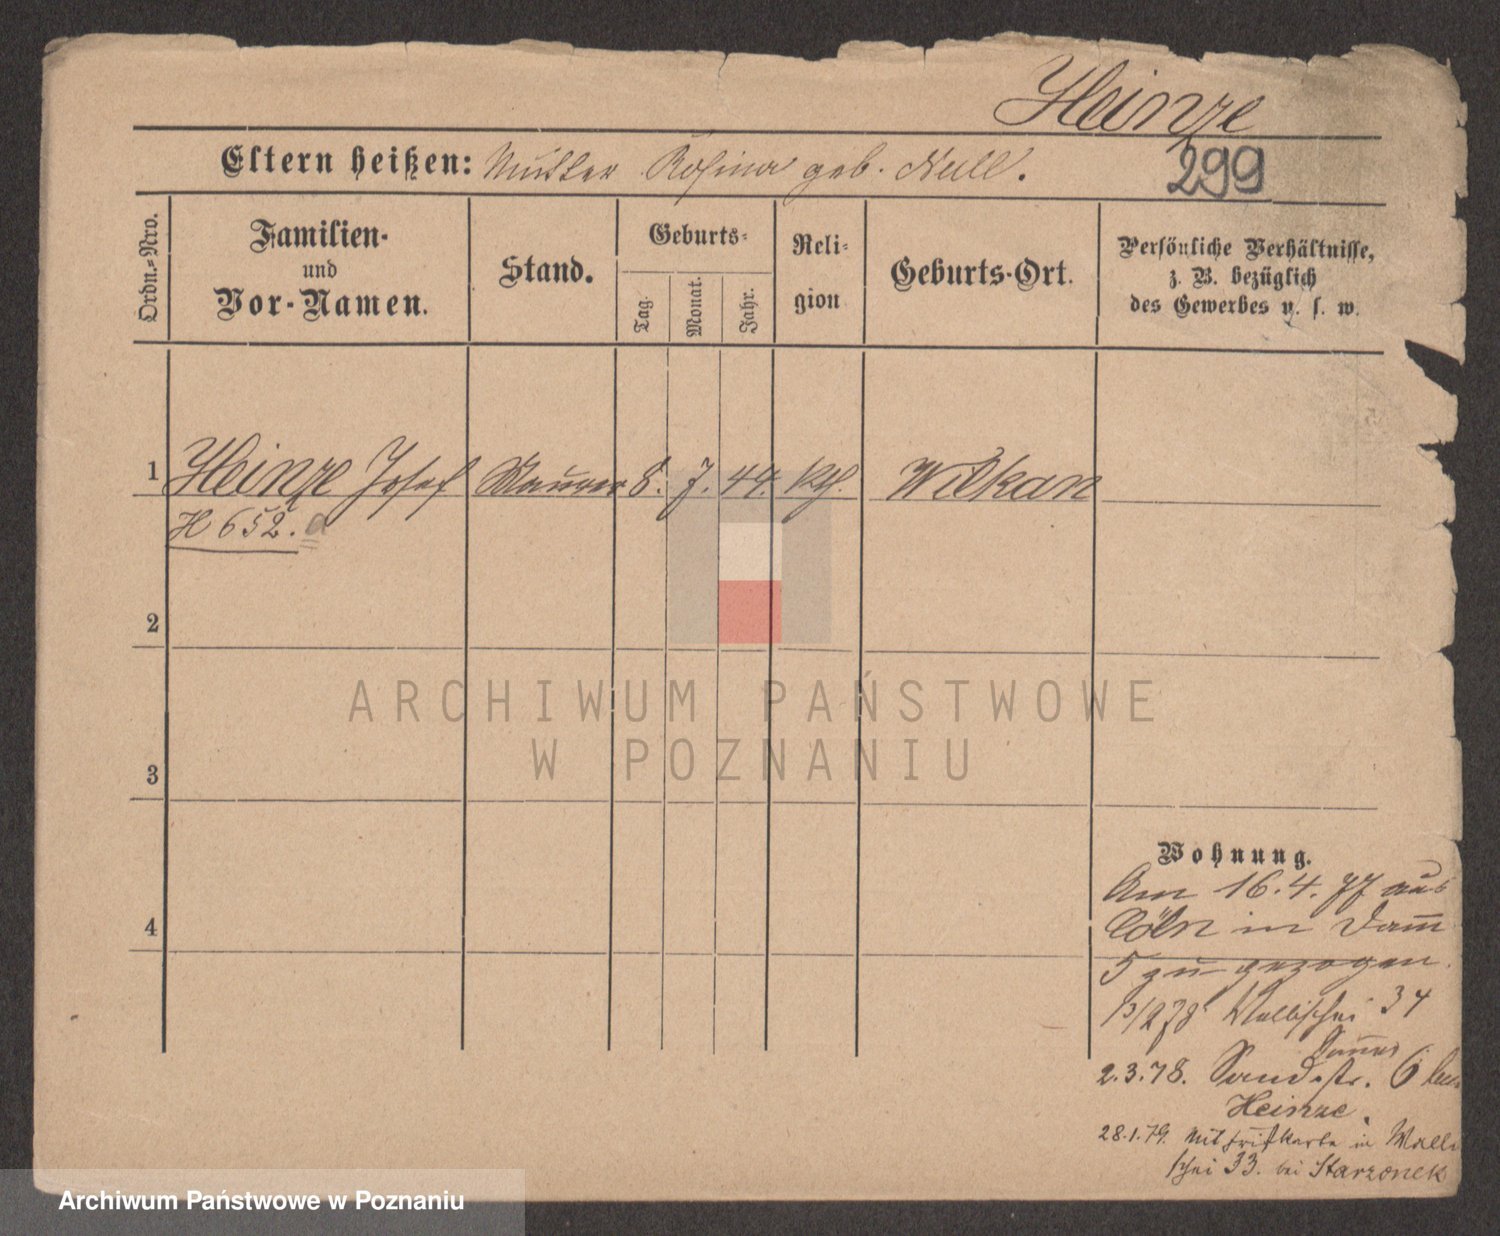 Heinze
Eltern heißen: Mutter Rosina geb. Null.
299
Ordn.-Nro.
Familien-
und
Vor-Namen.
Stand.
Geburts-
Tag.
Monat.
Jahr.
Reli-
gion
Geburts-Ort.
Persönliche Verhältnisse,
z. B. bezüglich
des Gewerbes u. s. w.
1 Heinze Josef Maurer 8. 7. 44. kth. Wilkan
H 652. a
2
3
4
ARCHIWUM PAŃSTWOWE
W POZNANIU
Wohnung.
Am 16.4.77 aus
Cöln in Dam̄
5 zugezogen.
/2 78 Wallischei 34
2.3.78. Sandstr. 6 bei
Heinze.
28.1.79. Mit in Walli
schei 33. bei Starzonek
Archiwum Państwowe w Poznaniu